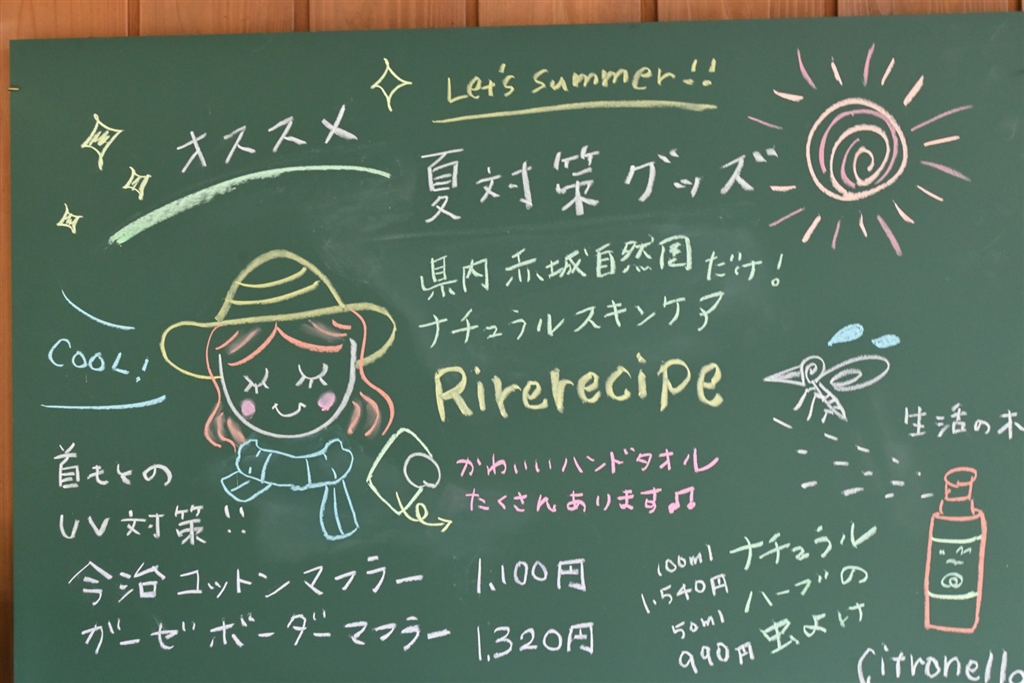 Let's summer!!
オススメ
夏対策グッズ
県内 赤城自然園だけ!
ナチュラルスキンケア
Rirerecipe
COOL!
かわいいハンドタオル
たくさんあります♫
首もとの
UV対策!!
今治コットンマフラー 1,100円
ガーゼボーダーマフラー 1,320円
生活の木
100ml
1,540円
50ml
990円
ナチュラル
ハーブの
虫よけ
Citronella